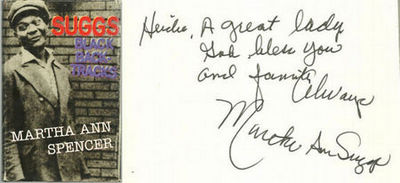 SUGGS
BLACK
BACK-
TRACKS
MARTHA ANN
SPENCER
A great lady
God bless you
and family
Always
Martha Ann Suggs